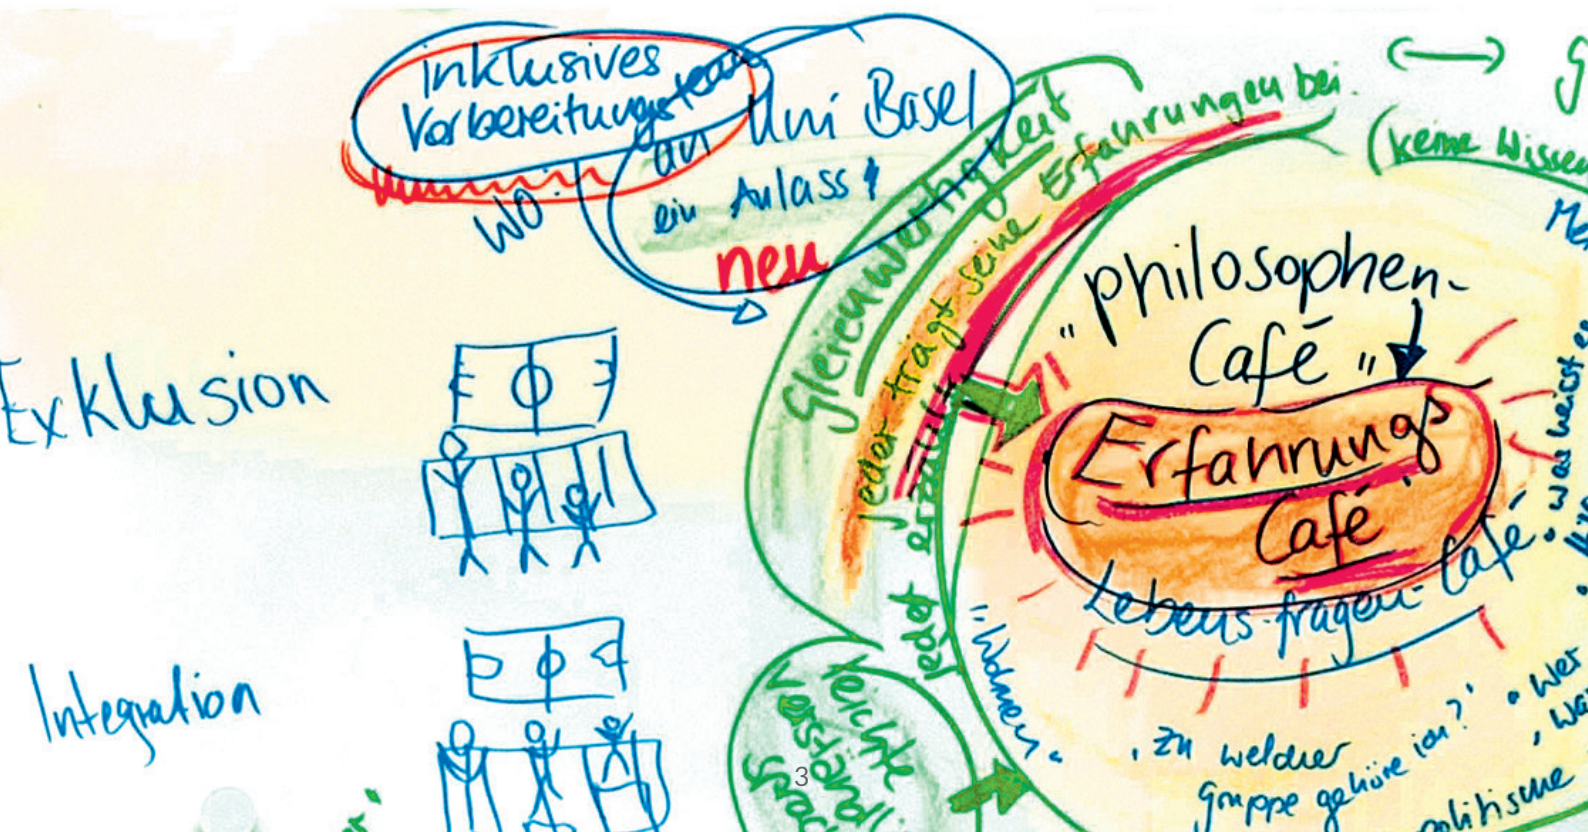 inklusives
Vorbereitungsteam
an Uni Basel
ein Anlass!
neu
wo
Exklusion
Integration
Gleichwertigkeit
jeder trägt seine Erfahrungen bei.
jeder erzählt
(keine Wissen
"Philosophen-
Café"
Erfahrungs
Café
Lebensfragen-Café
"Wohnen"
"zu welcher
Gruppe gehöre ich?"
"wer
politische
was heisst es
leichte
3